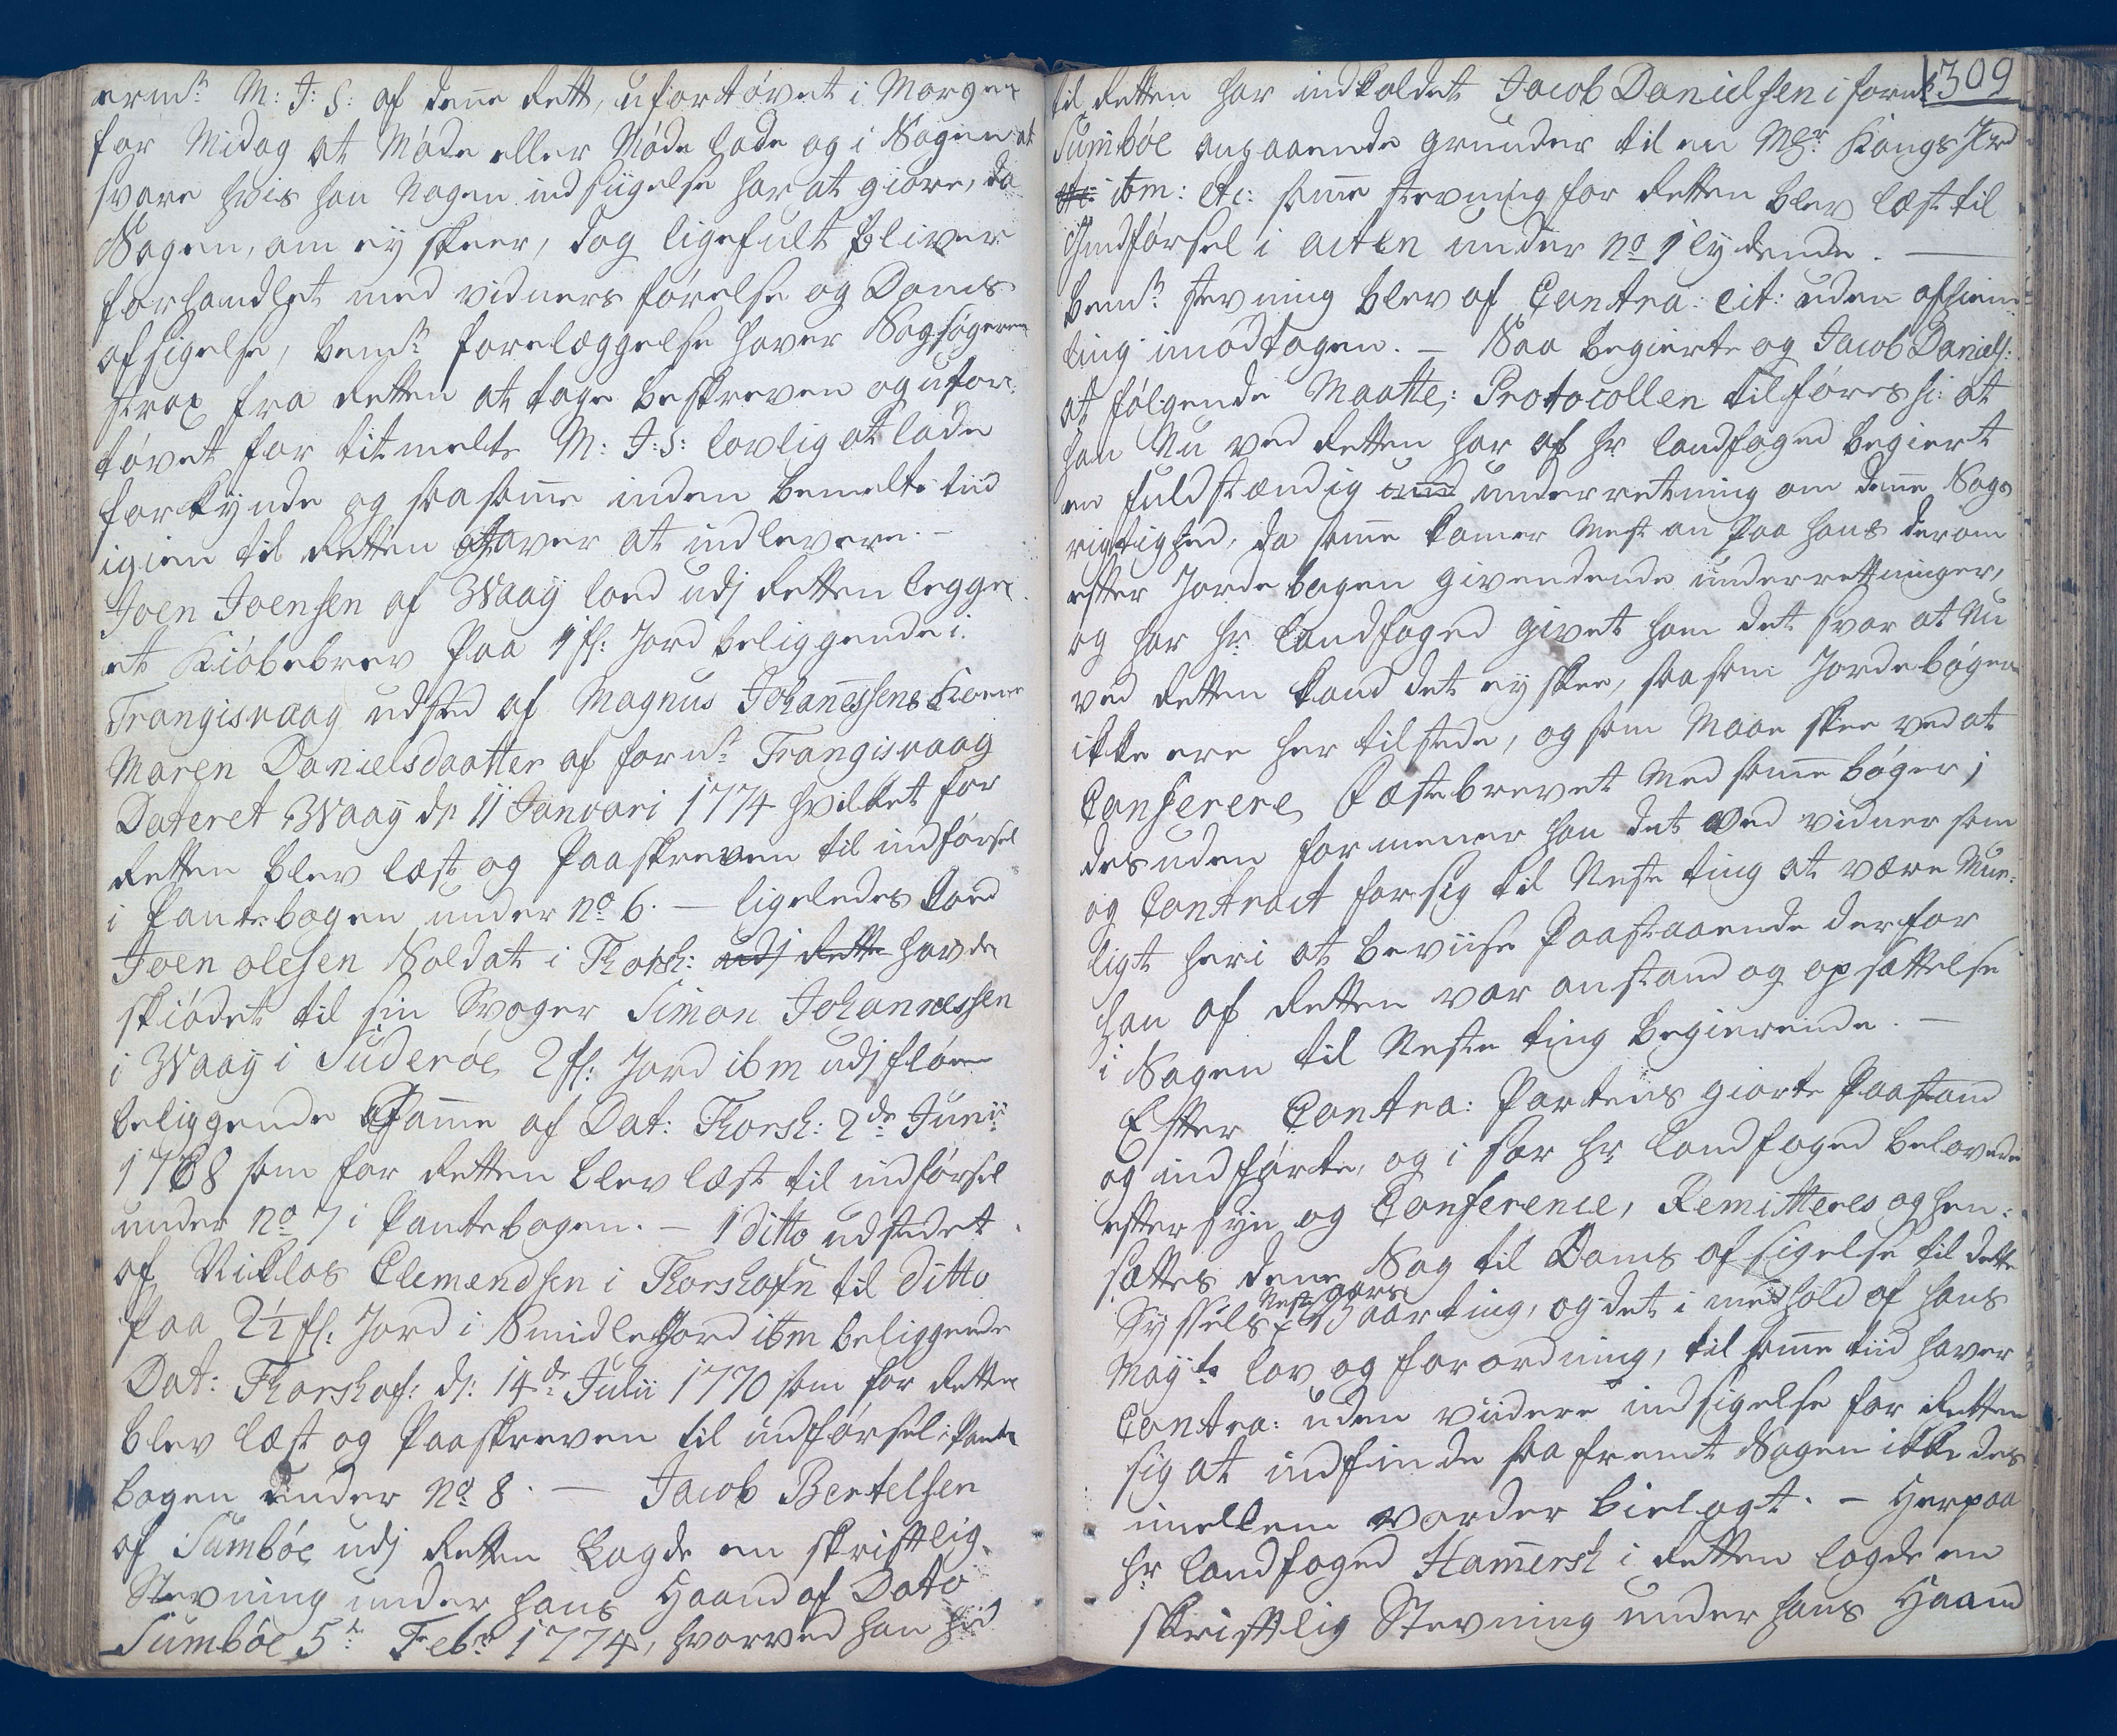 ermte M: J: S: af dene Rett, ufortøvet i Morgen
for Midag at Møde eller Møde lade og i Sagen at
svare hvis han Nogen indsiigelse har at giøre, da
Sagen, om ey skeer, dog ligefult bliver
forhandlet med vidners førelse og Doms
afsigelse, bemte forelæggelse haver Sagsøgeren
strax fra Retten at tage beskreven og ufor:
tøvet for titmelte M: J: S: lovlig at lade
forkynde og saa same inden bemelte tiid
igien til Retten haver at indlevere. –
Joen Joensen af Waaÿ loed udj Retten legge
et Kiøbebrev paa 1 fl: Jord beliggende i
Trangisvaag udsted af Magnus Johanessens Kone
Maren Danielsdaatter af fornte Trangisvaag
Dateret Waaÿ d: 11 Januari 1774 hvilket for
Retten blev læst og Paaskreven til indførsel
i Pantebogen under No 6. – ligeledes loed
Joen Olesen Soldat i Thorsh: udj Rette havde
skiødet til sin Svoger Simon Johannessen
i Waaÿ i Suderøe 2 fl: Jord ibm udj fløen
beliggende Same af Dat: Thorsh: 2de Junii
1768 som for Retten blev læst til indførsel
under No 7 i Pantebogen. – 1 ditto udstedet
af Niklas Clemendsen i Thorshafn til ditto
Paa 2½ fl: Jord i Smidlejord ibm beliggende
Dat: Thorshaf: d: 14de Julii 1770 som for Retten
blev læst og Paaskreven til indførsel i Pante
bogen under No 8. – Jacob Bertelsen
af Sumbøe udj Retten Lagde en skriftlig
Stevning under hans Haand af Dato
Sumbøe 5te Febr: 1774, hvorved han hid
309
til Retten har indkaldet Jacob Danielsen i fornte
Sumbøe angaaende grunder til en Mr: Kongs Jord
etc: ibm: etc: same stevning for Retten blev læst til
Indførsel i acten under No 1 lydende. –
bemte stevning blev af Contra: Cit: uden afhiem:
ling imodtagen. – Saa begierte og Jacob Daniels:
at følgende Maatte: Protocollen tilføres si: at
han Nu ved Retten har af hr landfoged begiert
en fuldstændig und underretning om dene Sags
rigtighed, da same komer mest an paa hans derom
efter Jordebogen givendende underrettninger,
og har hr: landfoged givet ham det svar at Nu
ved Retten kand det ey skee, saasom Jordebøgene
ikke ere her tilstede, og som Maae skee ved at
Conferere Fæstebrevet med same bøger;
desuden formener han det ved vidner som
og Contract for sig til Neste ting at være Mue:
ligt heri at beviise Paastaaende derfor
han af Retten var anstand og opsættelse
i Sagen til Neste ting begierende. –
Efter Contra: Partens giorte Paastand
og indførte, og i sær hr landfoged belovede
eftersyn og Conference, Remitteres og hen:
sættes dene Sag til Doms afsigelse til dette
Neste aars
Syssels Vaarting, og det i medhold af hans
Mayts lov og forordning, til same tiid haver
Contra: uden viidere indsigelse for Retten
sig at indfinde saafremt Sagen ikke des
imellem vorder bielagt. – Herpaa
hr landfoged Hamersh i Retten lagde en
skriftlig Stevning under hans Haand